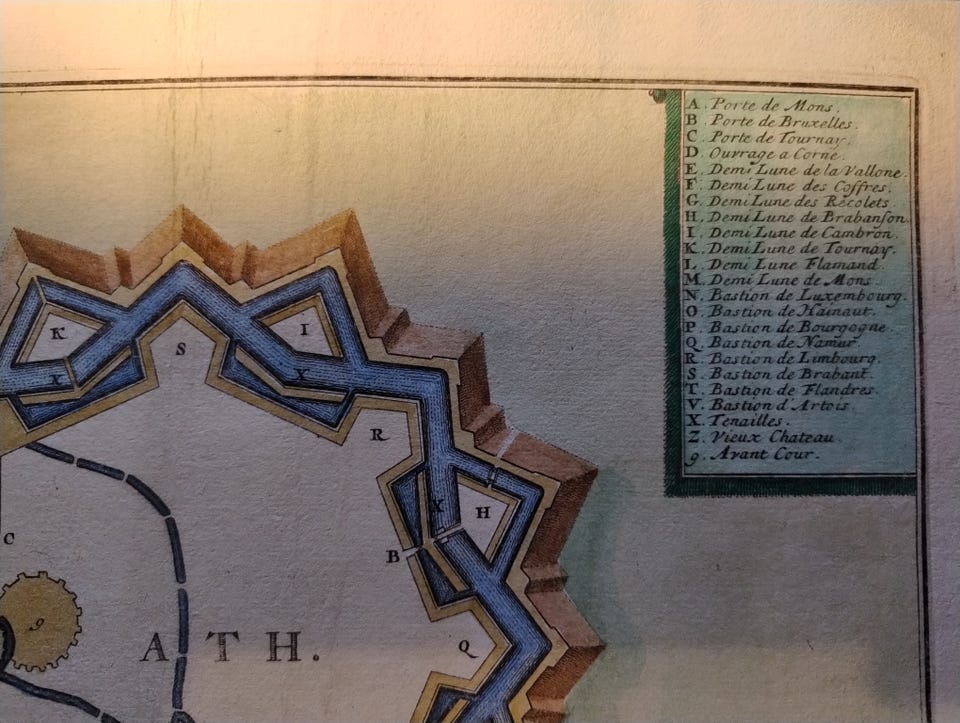 A. Porte de Mons.
B. Porte de Bruxelles.
C. Porte de Tournay.
D. Ouvrage a Corne.
E. Demi Lune de la Vallone.
F. Demi Lune des Coffres.
G. Demi Lune des Récolets
H. Demi Lune de Brabanson.
I. Demi Lune de Cambron.
K. Demi Lune de Tournay.
L. Demi Lune Flamand.
M. Demi Lune de Mons.
N. Bastion de Luxembourg.
O. Bastion de Hainaut.
P. Bastion de Bourgogne.
Q. Bastion de Namur.
R. Bastion de Limbourg.
S. Bastion de Brabant.
T. Bastion de Flandres.
V. Bastion d'Artois.
X. Tenailles.
Z. Vieux Chateau.
9. Avant Cour.
K
I
S
X
X
R
X
H
C
B
9
ATH.
Q